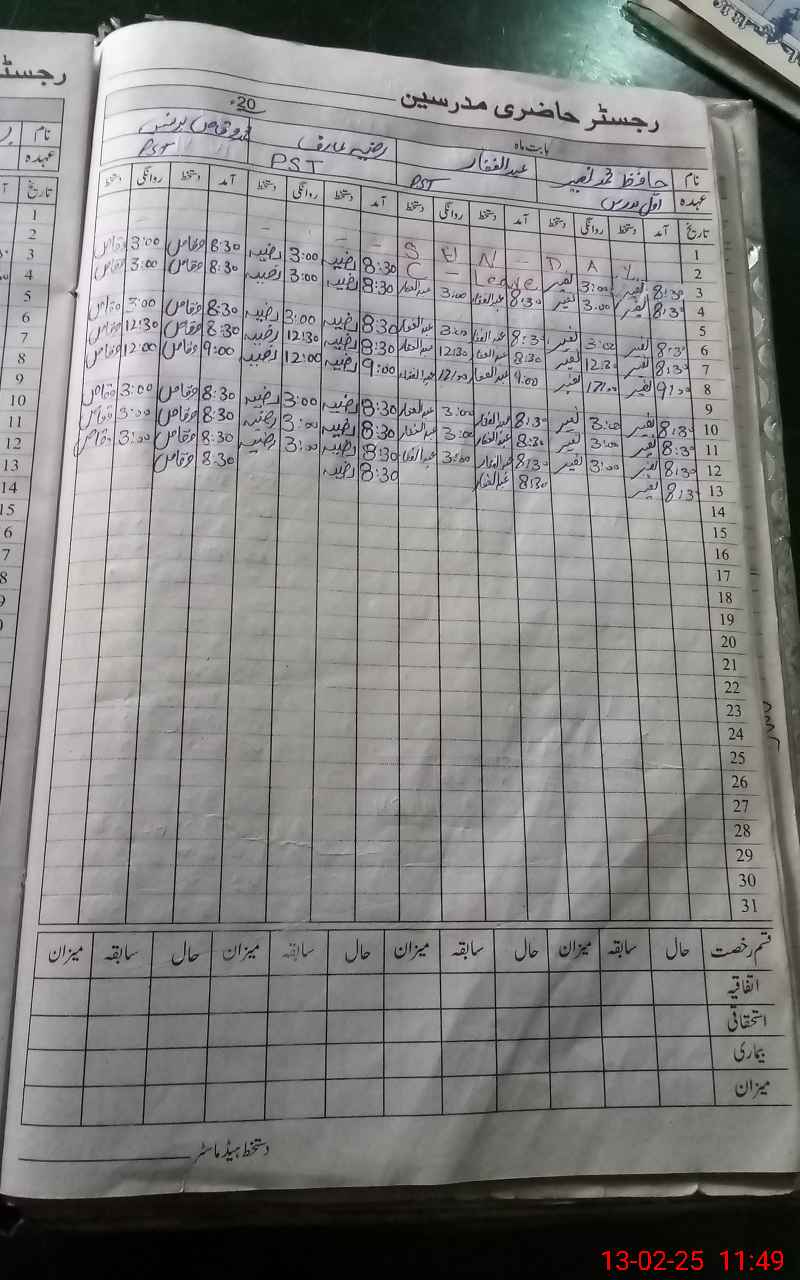 رجسٹر حاضری مدرسین
بابت ماہ 20ء
نام حافظ محمد نصیر عبدالغفار رضیہ عارف
عہدہ اول مدرس PST PST PST
تاریخ آمد دستخط روانگی دستخط آمد دستخط روانگی دستخط آمد دستخط روانگی دستخط آمد دستخط روانگی دستخط
1
2 S U N - D A Y
3 8:30 نصیر 3:00 نصیر Leave - C 8:30 رضیہ 3:00 رضیہ 8:30 وقاص 3:00 وقاص
4 8:30 نصیر 3:00 نصیر 8:30 عبدالغفار 3:00 عبدالغفار 8:30 رضیہ 3:00 رضیہ 8:30 وقاص 3:00 وقاص
5
6 8:30 نصیر 3:00 نصیر 8:30 عبدالغفار 3:00 عبدالغفار 8:30 رضیہ 3:00 رضیہ 8:30 وقاص 3:00 وقاص
7 8:30 نصیر 12:30 نصیر 8:30 عبدالغفار 12:30 عبدالغفار 8:30 رضیہ 12:30 رضیہ 8:30 وقاص 12:30 وقاص
8 9:00 نصیر 12:00 نصیر 9:00 عبدالغفار 12:00 عبدالغفار 9:00 رضیہ 12:00 رضیہ 9:00 وقاص 12:00 وقاص
9
10 8:30 نصیر 3:00 نصیر 8:30 عبدالغفار 3:00 عبدالغفار 8:30 رضیہ 3:00 رضیہ 8:30 وقاص 3:00 وقاص
11 8:30 نصیر 3:00 نصیر 8:30 عبدالغفار 3:00 عبدالغفار 8:30 رضیہ 3:00 رضیہ 8:30 وقاص 3:00 وقاص
12 8:30 نصیر 3:00 نصیر 8:30 عبدالغفار 3:00 عبدالغفار 8:30 رضیہ 3:00 رضیہ 8:30 وقاص 3:00 وقاص
13 8:30 نصیر 8:30 عبدالغفار 8:30 رضیہ 8:30 وقاص
14
15
16
17
18
19
20
21
22
23
24
25
26
27
28
29
30
31
قسم رخصت حال سابقہ میزان حال سابقہ میزان حال سابقہ میزان حال سابقہ میزان
اتفاقیہ
استحقاقی
بیماری
میزان
دستخط ہیڈ ماسٹر
13-02-25 11:49